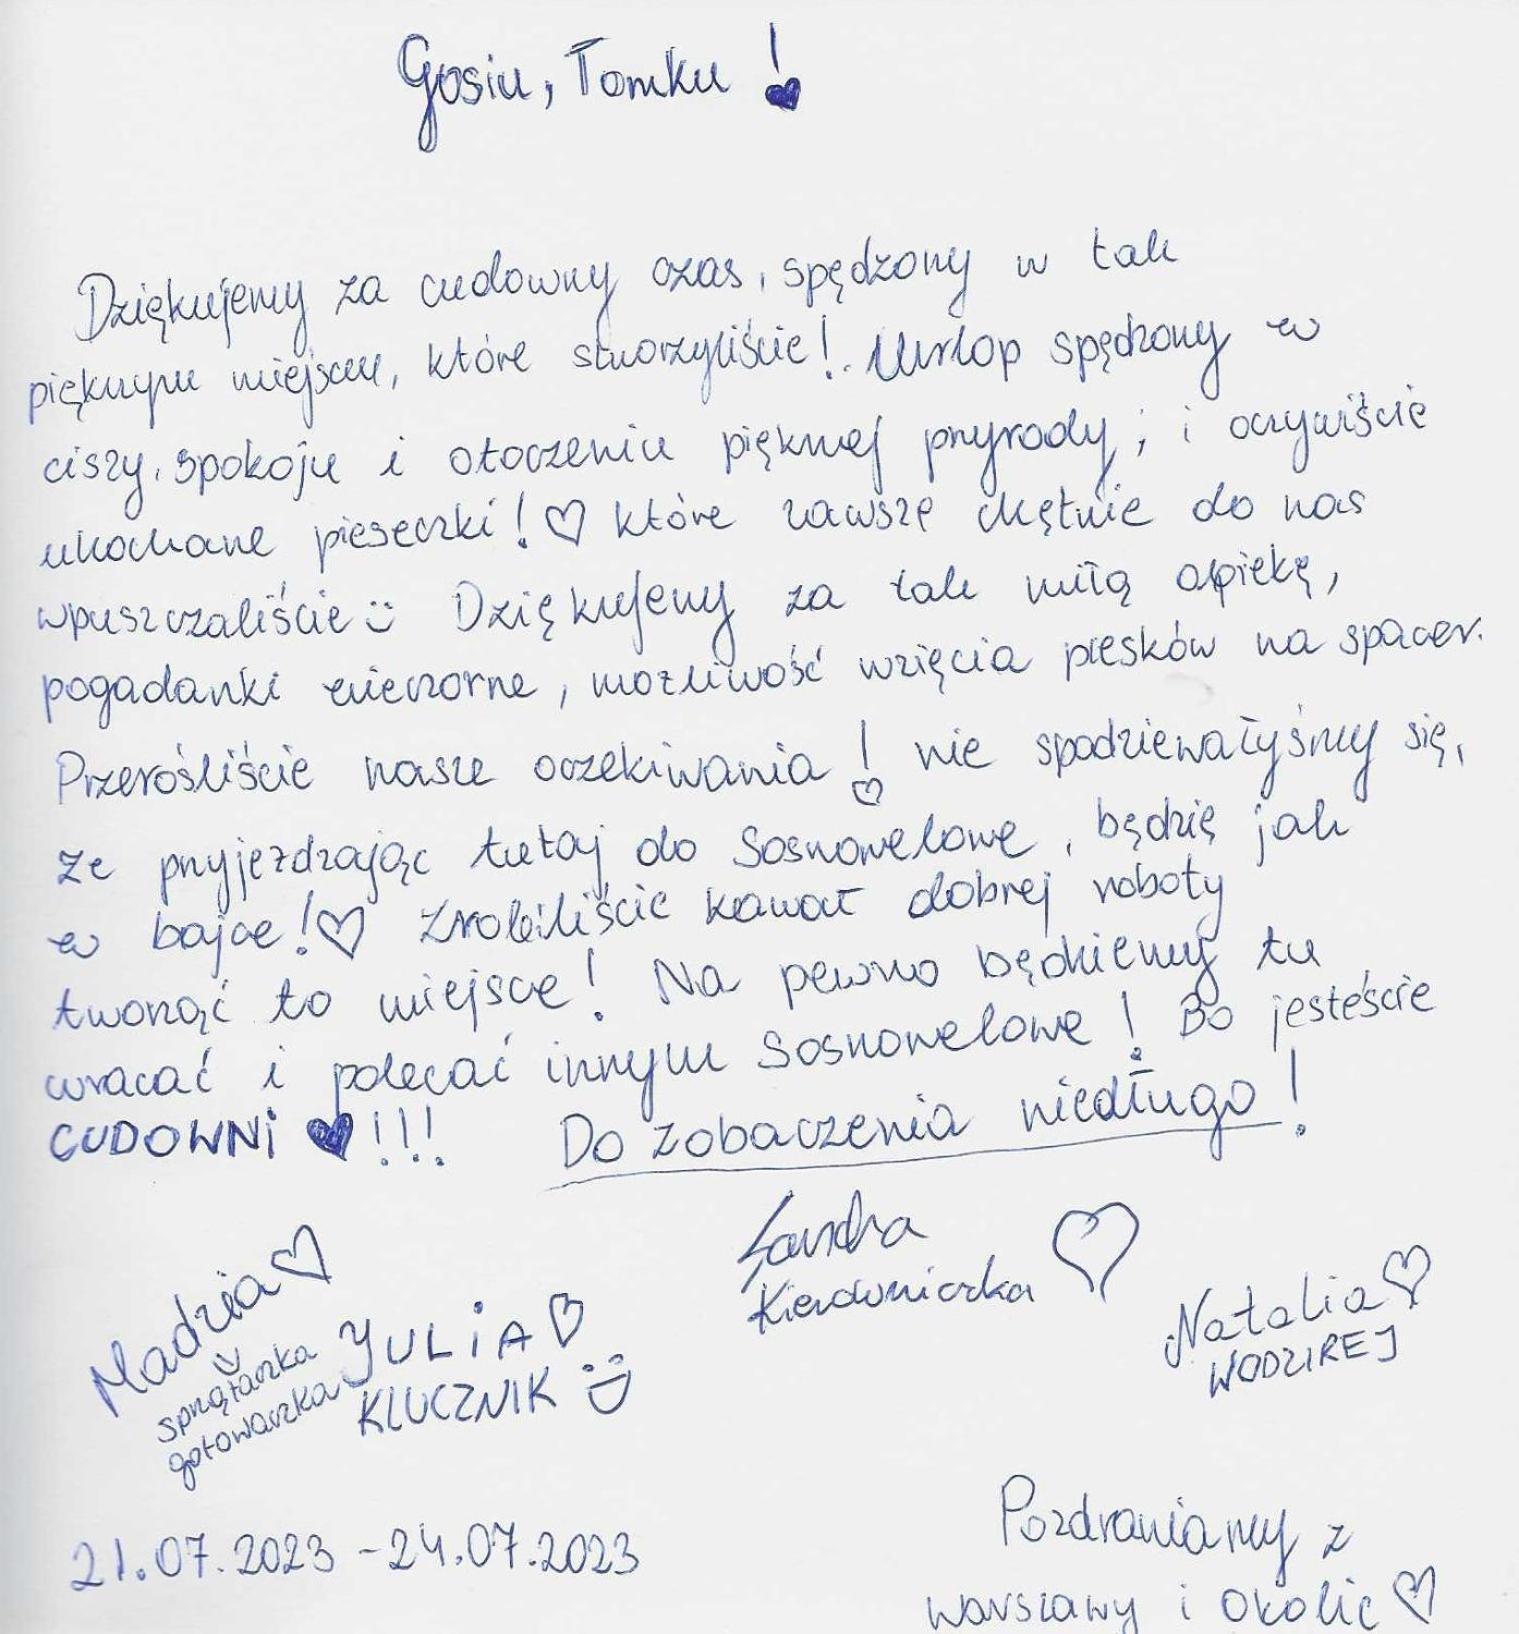 Gosiu, Tomku!
Dziękujemy za cudowny czas, spędzony w tak
pięknym miejscu, które stworzyliście! Urlop spędzony w
ciszy, spokoju i otoczeniu pięknej przyrody; i oczywiście
ukochane pieseczki! ♡ które zawsze chętnie do nas
wpuszczaliście :) Dziękujemy za tak miłą opiekę,
pogadanki wieczorne, możliwość wzięcia piesków na spacer.
Przerośliście nasze oczekiwania! ♡ nie spodziewałyśmy się,
że przyjeżdzając tutaj do Sosnowelowe, będzię jak
w bajce! ♡ Zrobiliście kawał dobrej roboty
tworząć to miejsce! Na pewno będziemy tu
wracać i polecać innym Sosnowelowe! Bo jesteście
CUDOWNI ♥!!! Do zobaczenia niedługo!
Madzia ♡
sprzątaczka
gotowaczka
YULiA ♡
KLUCZNIK :)
Sandra
Kierowniczka ♡
Natalia ♡
WODZIREJ
21.07.2023 - 24.07.2023
Pozdrawiamy z
Warszawy i okolic ♡